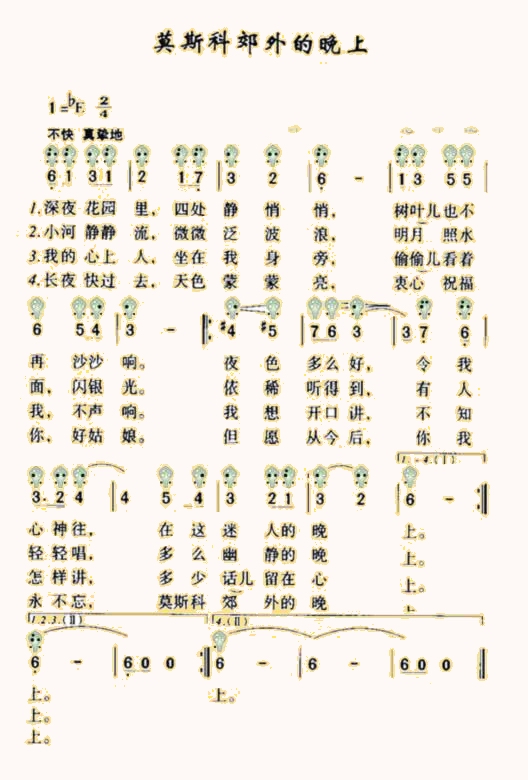 莫斯科郊外的晚上
1=♭E 2/4
不快 真挚地
6 1 3 1 | 2 1 7 | 3 2 | 6 - | 1 3 5 5
1.深夜 花园 里, 四处 静 悄 悄, 树叶儿也不
2.小河 静静 流, 微微 泛 波 浪, 明月 照水
3.我的 心上 人, 坐在 我 身 旁, 偷偷儿看着
4.长夜 快过 去, 天色 蒙 蒙 亮, 衷心 祝福
6 5 4 | 3 - :#4 #5 | 7 6 3 | 3 7 6 |
再 沙沙 响。 夜 色 多么 好, 令 我
面, 闪银 光。 依 稀 听得 到, 有 人
我, 不声 响。 我 想 开口 讲, 不 知
你, 好姑 娘。 但 愿 从今 后, 你 我
1.-4.(Ⅰ)
3. 2 4 | 4 5 4 | 3 2 1 | 3 2 | 6 - :|
心 神 往, 在 这 迷 人的 晚 上。
轻 轻 唱, 多 么 幽 静的 晚 上。
怎 样 讲, 多 少 话儿 留在 心 上。
永 不 忘, 莫斯科 郊 外的 晚
1.2.3.(Ⅱ) 4.(Ⅱ)
6 - | 6 0 0 :| 6 - | 6 - | 6 0 0 |
上。 上。
上。
上。